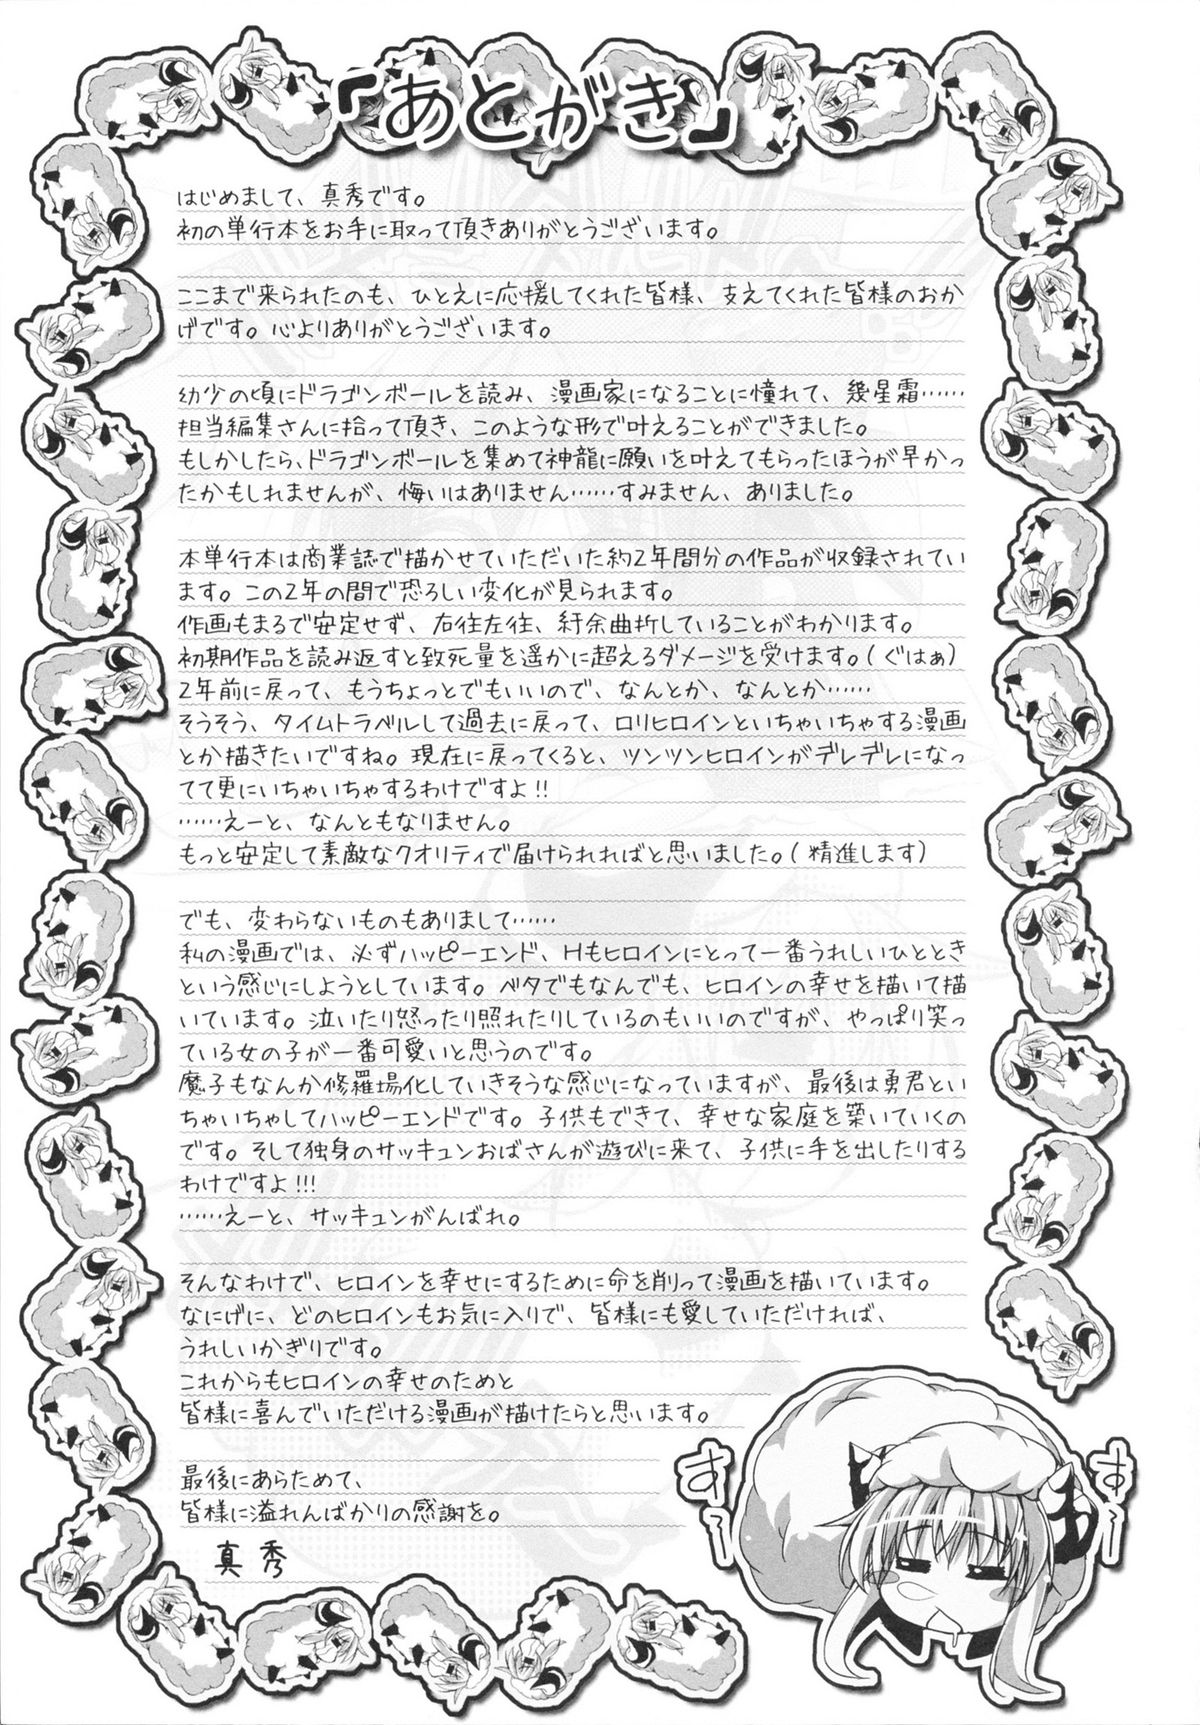 「あとがき」
はじめまして、真秀です。
初の単行本をお手に取って頂きありがとうございます。
ここまで来られたのも、ひとえに応援してくれた皆様、支えてくれた皆様のおか
げです。心よりありがとうございます。
幼少の頃にドラゴンボールを読み、漫画家になることに憧れて、幾星霜……
担当編集さんに拾って頂き、このような形で叶えることができました。
もしかしたら、ドラゴンボールを集めて神龍に願いを叶えてもらったほうが早かっ
たかもしれませんが、悔いはありません……すみません、ありました。
本単行本は商業誌で描かせていただいた約2年間分の作品が収録されてい
ます。この2年の間で恐ろしい変化が見られます。
作画もまるで安定せず、右往左往、紆余曲折していることがわかります。
初期作品を読み返すと致死量を遥かに超えるダメージを受けます。(ぐはぁ)
2年前に戻って、もうちょっとでもいいので、なんとか、なんとか……
そうそう、タイムトラベルして過去に戻って、ロリヒロインといちゃいちゃする漫画
とか描きたいですね。現在に戻ってくると、ツンツンヒロインがデレデレになっ
てて更にいちゃいちゃするわけですよ!!
……えーと、なんともなりません。
もっと安定して素敵なクオリティで届けられればと思いました。(精進します)
でも、変わらないものもありまして……
私の漫画では、必ずハッピーエンド、Hもヒロインにとって一番うれしいひととき
という感じにしようとしています。ベタでもなんでも、ヒロインの幸せを描いて描
いています。泣いたり怒ったり照れたりしているのもいいのですが、やっぱり笑っ
ている女の子が一番可愛いと思うのです。
魔子もなんか修羅場化していきそうな感じになっていますが、最後は勇君とい
ちゃいちゃしてハッピーエンドです。子供もできて、幸せな家庭を築いていくの
です。そして独身のサッキュンおばさんが遊びに来て、子供に手を出したりする
わけですよ!!!
……えーと、サッキュンがんばれ。
そんなわけで、ヒロインを幸せにするために命を削って漫画を描いています。
なにげに、どのヒロインもお気に入りで、皆様にも愛していただければ、
うれしいかぎりです。
これからもヒロインの幸せのためと
皆様に喜んでいただける漫画が描けたらと思います。
最後にあらためて、
皆様に溢れんばかりの感謝を。
真秀
す〜
す〜